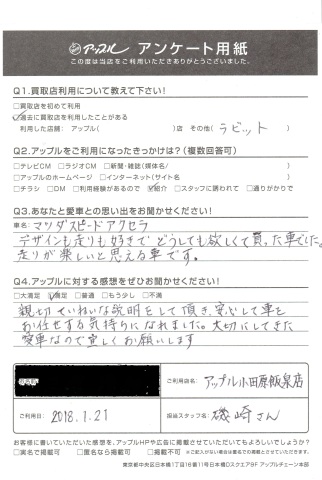 アップル アンケート用紙
この度は当店をご利用いただきありがとうございました。
Q1.買取店利用について教えて下さい!
□買取店を初めて利用
☑過去に買取店を利用したことがある
利用した店舗: アップル( )店 その他( ラビット )
Q2.アップルをご利用になったきっかけは?(複数回答可)
□テレビCM □ラジオCM □新聞・雑誌(媒体名/ )
□アップルのホームページ □インターネット(サイト名 )
□チラシ □DM □利用経験があるので ☑紹介 □スタッフに誘われて □通りがかりで
Q3.あなたと愛車との思い出をお聞かせください!
車名: マツダスピードアクセラ
デザインも走りも好きで どうしても欲しくて買った車でした。
走りが楽しいと思える車です。
Q4.アップルに対する感想をぜひお聞かせください!
□大満足 ☑満足 □普通 □もう少し □不満
親切ていねいな説明をして頂き、安心して車を
お任せする気持ちになれました。大切にしてきた
愛車なので宜しくお願いします
ご利用店名: アップル小田原飯泉店
ご利用日: 2018.1.21
担当スタッフ名: 磯崎さん
お客様に書いていただいた感想を、アップルHPや広告に掲載させていただいてもよろしいでしょうか?
□実名で掲載可 □匿名なら掲載可 □掲載不可 ※ご記入がない場合は匿名での掲載とさせていただきます。
東京都中央区日本橋1丁目16番11号日本橋Dスクエア9F アップルチェーン本部